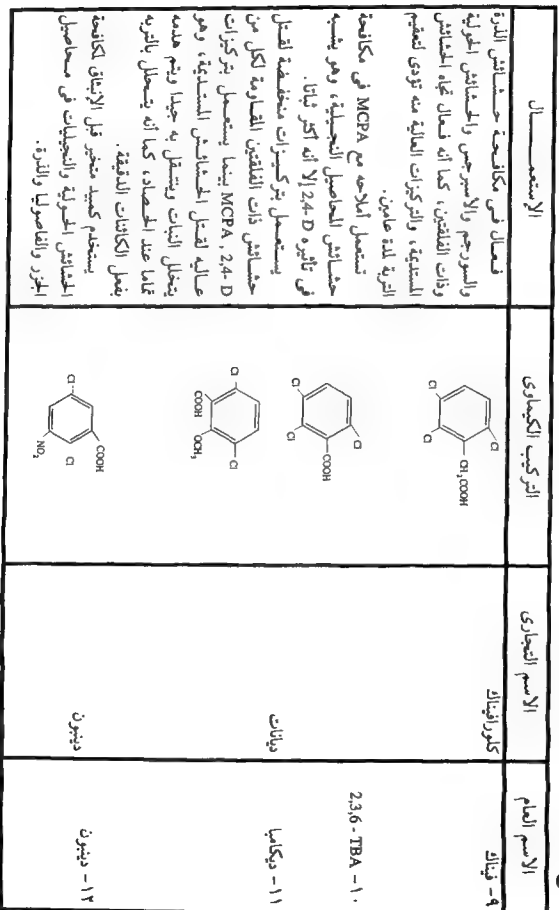 الاسم العام
الاسم التجارى
التركيب الكيماوى
الإستعمـــــال
٩- فيناك
كلورافيناك
Cl
CH₂COOH
Cl
Cl
فعـال فـى مكافـحـة حـشـائش الذرة
والسورجم والاسبرجس والحشائش الحولية
وذات الفلقتين، كما أنه فعال تجاه الحشائش
المستديمة، والتركيزات العالية منه تؤدى لتعقيم
التربة لمدة عامين.
١٠- 2,3,6 - TBA
Cl
COOH
Cl
Cl
تستعمل أملاحه مع MCPA فى مكافحة
حشائش المحاصيل النجيلية، وهو يشبه
فى تأثيره 2,4-D إلا أنه أكثر ثباتا.
١١- ديكامبا
ديانات
Cl
OCH₃
COOH
Cl
يستعمل بتركيزات منخفضة لقتل
حشائش ذات الفلقتين المقاومة لكل من
MCPA , 2,4-D بينما يستعمل بتركيزات
عاليه لقتل الحشائش المستديمة، وهو
يتخلل النبات وينتقل به جيدا ويتم هدمه
تماما عند الحصاد، كما أنه يتحلل بالتربه
بفعل الكائنات الدقيقة.
١٢- دينبون
دينبون
COOH
Cl
NO₂
Cl
يستخدم كمبيد متخير قبل الإنبثاق لمكافحة
الحشائش الحولية والنجيليات فى محاصيل
الجزر والفاصوليا والذرة.